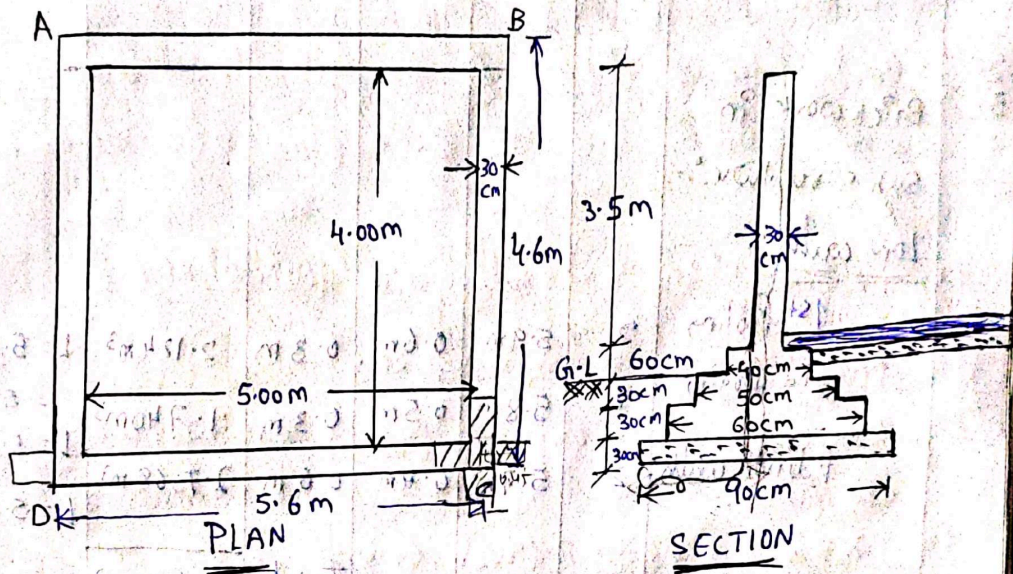 A
B
30
cm
4.00m
4.6m
5.00m
D
C
5.6m
PLAN
3.5m
30
cm
G.L
60cm
40cm
30cm
50cm
30cm
60cm
30cm
90cm
SECTION